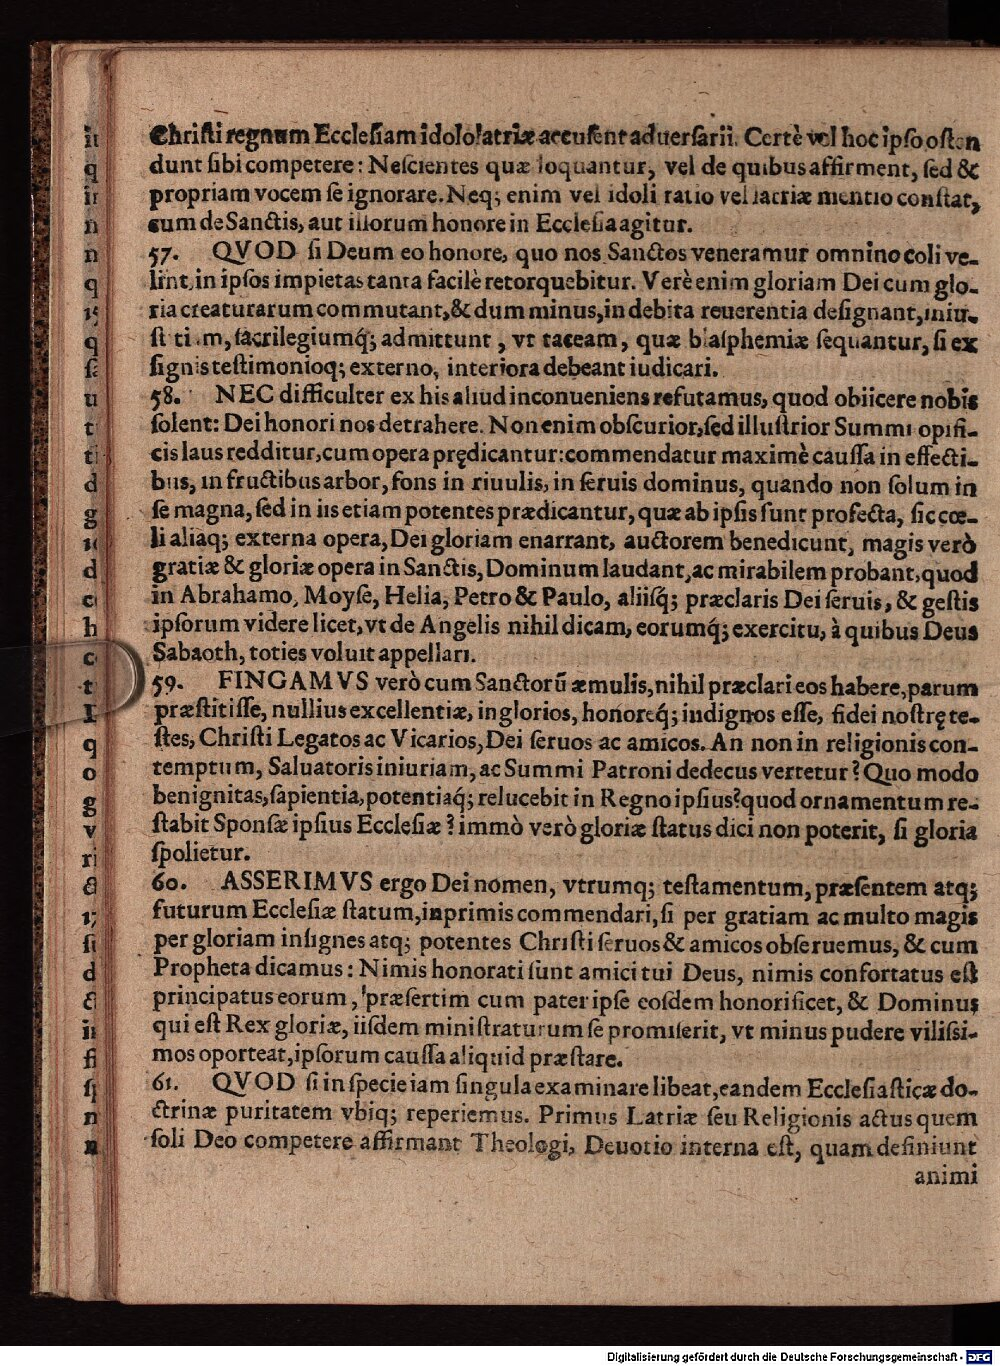 Chriſti regnum Eccleſiam idololatriæ accuſent aduerſarii. Certè vel hoc ipſo oſten
dunt ſibi competere: Neſcientes quæ loquantur, vel de quibus affirment, ſed &
propriam vocem ſe ignorare. Neq; enim vel idoli ratio vel latriæ mentio conſtat,
cum de Sanctis, aut illorum honore in Eccleſia agitur.
57. QVOD ſi Deum eo honore, quo nos Sanctos veneramur omnino coli ve-
lint, in ipſos impietas tanta facilè retorquebitur. Verè enim gloriam Dei cum glo-
ria creaturarum commutant, & dum minus, indebita reuerentia deſignant, iniu-
ſtitiam, ſacrilegiumq́; admittunt, vt taceam, quæ blaſphemiæ ſequantur, ſi ex
ſignis teſtimonioq; externo, interiora debeant iudicari.
58. NEC difficulter ex his aliud inconueniens refutamus, quod obiicere nobis
ſolent: Dei honori nos detrahere. Non enim obſcurior, ſed illuſtrior Summi opifi-
cis laus redditur, cum opera prędicantur: commendatur maximè cauſſa in effecti-
bus, in fructibus arbor, fons in riuulis, in ſeruis dominus, quando non ſolum in
ſe magna, ſed in iis etiam potentes prædicantur, quæ ab ipſis ſunt profecta, ſic cœ-
li aliaq; externa opera, Dei gloriam enarrant, auctorem benedicunt, magis verò
gratiæ & gloriæ opera in Sanctis, Dominum laudant, ac mirabilem probant, quod
in Abrahamo, Moyſe, Helia, Petro & Paulo, aliiſq́; præclaris Dei ſeruis, & geſtis
ipſorum videre licet, vt de Angelis nihil dicam, eorumq́; exercitu, à quibus Deus
Sabaoth, toties voluit appellari.
59. FINGAMVS verò cum Sanctorū æmulis, nihil præclari eos habere, parum
præſtitiſſe, nullius excellentiæ, inglorios, honoreq́; indignos eſſe, fidei noſtrę te-
ſtes, Chriſti Legatos ac Vicarios, Dei ſeruos ac amicos. An non in religionis con-
temptum, Saluatoris iniuriam, ac Summi Patroni dedecus vertetur? Quo modo
benignitas, ſapientia, potentiaq́; relucebit in Regno ipſius? quod ornamentum re-
ſtabit Sponſæ ipſius Eccleſiæ? immò verò gloriæ ſtatus dici non poterit, ſi gloria
ſpolietur.
60. ASSERIMVS ergo Dei nomen, vtrumq; teſtamentum, præſentem atq;
futurum Eccleſiæ ſtatum, inprimis commendari, ſi per gratiam ac multo magis
per gloriam inſignes atq; potentes Chriſti ſeruos & amicos obſeruemus, & cum
Propheta dicamus: Nimis honorati ſunt amici tui Deus, nimis confortatus eſt
principatus eorum, præſertim cum pater ipſe eoſdem honorificet, & Dominus
qui eſt Rex gloriæ, iiſdem miniſtraturum ſe promiſerit, vt minus pudere viliſsi-
mos oporteat, ipſorum cauſſa aliquid præſtare.
61. QVOD ſi in ſpecie iam ſingula examinare libeat, eandem Eccleſiaſticæ do-
ctrinæ puritatem vbiq; reperiemus. Primus Latriæ ſeu Religionis actus quem
ſoli Deo competere affirmant Theologi, Deuotio interna eſt, quam definiunt
animi
Digitalisierung gefördert durch die Deutsche Forschungsgemeinschaft - DFG